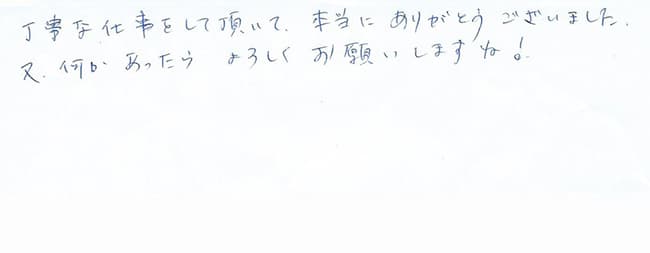 丁寧な仕事をして頂いて、本当にありがとうございました。
又、何かあったらよろしくお願いしますね!